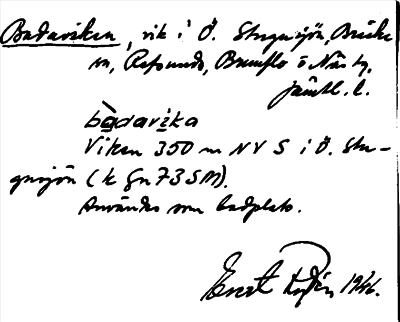 Badaviken, vik i Ö. Stugusjön, Bräcke
sn, Refsunds, Brunflo o Näs tg,
Jämtl. l.
bàdavika
Viken 350 m NV S i Ö. Stu-
gusjön (k Gn 73 SM).
Användes som badplats.
1946.